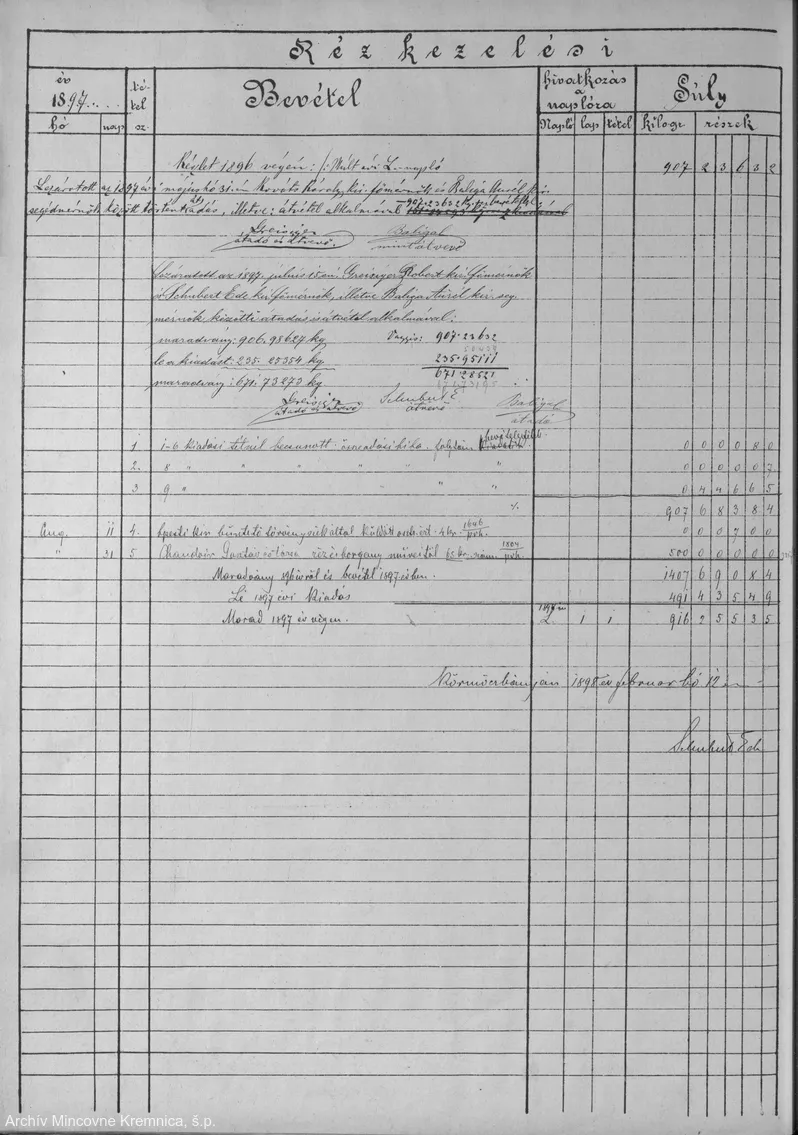 Rézkezelési
év 1897
té-
tel
sz.
Bevétel
hivatkozás
a
naplóra
Súly
hó nap
Napló lap tétel
kilogr. részek
Készlet 1896 végén: /: Mult évi L.-napló 907 2 3 6 3 2
Lezáratott az 1897 évi május hó 31-én Kováts Károly kir. főmérnök és Baliga Aurél kir.
segédmérnök között történt átadás, illetve: átvétel alkalmával 907.23632 kgr
átadó és átvevő. Baliga
mint átvevő
Lezáratott az 1897. julius 15-én Greisinger Robert kir. főmérnök
és Schubert Ede kir. főmérnök, illetve Baliga Aurél kir. seg.
mérnök közötti átadás és átvétel alkalmával:
maradvány: 906.98627 kg. 907.23632
le a kiadást: 235.25354 kg. 235.95111
maradvány: 671.73273 kg 671.28521
átadó és átvevő Schubert E. átvevő Baliga átadó
1 1-6 kiadási tételnél beosonott összeadási hiba folytán 0 0 0 0 8 0
2. 8 " " " " " " 0 0 0 0 0 7
3 9 " " " 0 4 4 6 6 5
907 6 8 3 8 4
Aug. 11 4. bpesti kir büntető törvényszék által küldött 4 kr. 1646/pvh. 0 0 0 7 0 0
" 31 5 Chaudoir Gusztáv és társa réz és sárgaréz műveitől 1804/pvh. 500 0 0 0 0 0
Maradvány 896 évről és bevétel 1897 évben. 1407 6 9 0 8 4
Lé 1897 évi Kiadás 491 4 3 5 4 9
Marad 1897 év végen. 2 1 1 916 2 5 5 3 5
Körmöczbányán 1898 év februar hó 12
Schubert Ede
Archív Mincovne Kremnica, š.p.